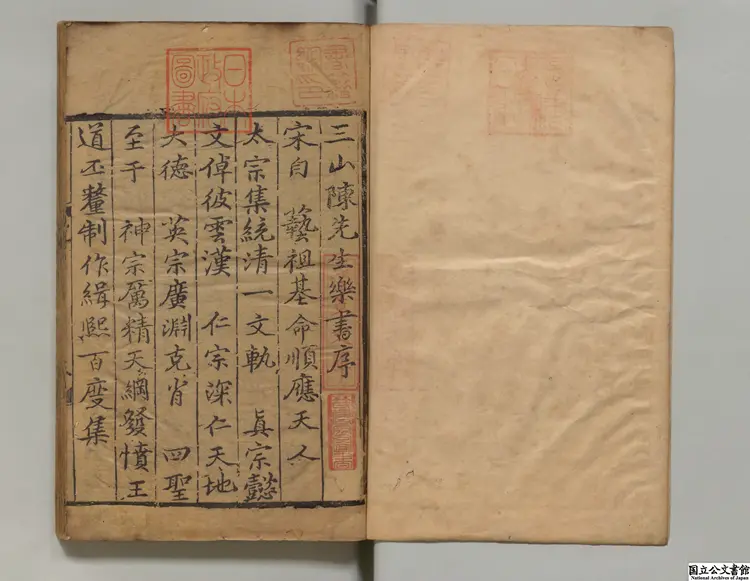 三山陳先生樂書序
宋自　藝祖基命順應天人
太宗集統清一文軌　真宗懿
文倬彼雲漢　仁宗深仁天地
大德　英宗廣淵克肖　四聖
至于　神宗厲精天綱發憤王
道丕釐制作緝熙百度集
日本
政府
圖書
国立公文書館
National Archives of Japan